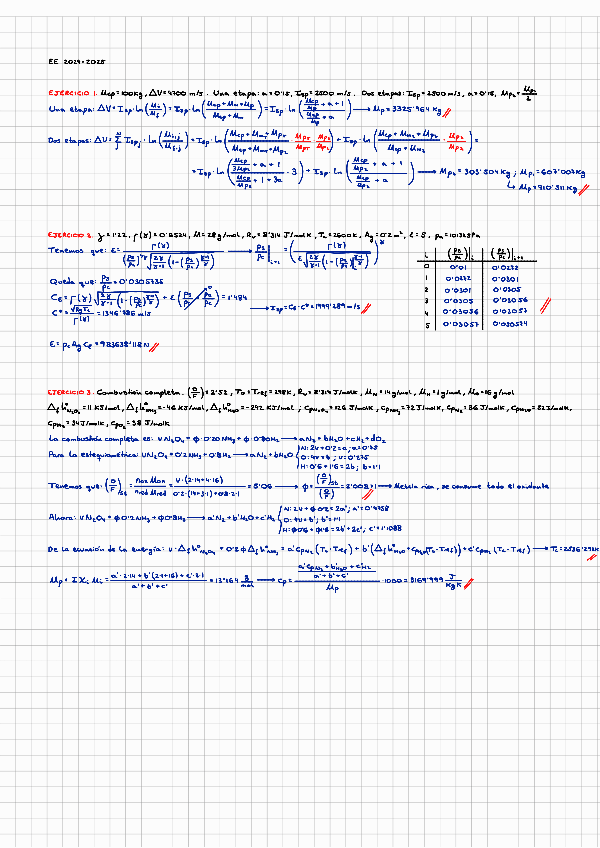 EE 2024-2025
EJERCICIO 1. Mcp=100kg, ΔV=4700 m/s. Una etapa: a=0'15, Isp=2500 m/s. Dos etapas: Isp=2500 m/s, a=0'15, Mp₂=Mp₁/2
Una etapa: ΔV=Isp·ln(M₀/Mf)=Isp·ln((Mcp+Mm+Mp)/(Mcp+Mm))=Isp·ln((Mcp/Mp+a+1)/(Mcp/Mp+a)) → Mp=3325'964 kg
Dos etapas: ΔV=Σ Ispj·ln(M₀j/Mfj)=Isp·ln((Mcp+Mm+MpT)/(Mcp+Mm+Mp₂)·Mp₂/MpT·MpT/Mp₂)+Isp·ln((Mcp+Mm₂+Mp₂)/(Mcp+Mm₂)·Mp₂/Mp₂)=
=Isp·ln((Mcp/3Mp₂+a+1)/(Mcp/Mp₂+1+3a)·3)+Isp·ln((Mcp/Mp₂+a+1)/(Mcp/Mp₂+a)) → Mp₂=303'504 kg; Mp₁=607'007 kg
↳ Mp=910'511 kg
EJERCICIO 2. γ=1'22, Γ(γ)=0'6524, M=28g/mol, Ru=8'314 J/molK, Tc=2600K, Ag=0'2m², ε=5.
Tenemos que: ε=Γ(γ)/((ps/pc)^(1/γ)√(2γ/(γ-1)(1-(ps/pc)^((γ-1)/γ)))) → ps/pc|i+1=(Γ(γ)/(ε√(2γ/(γ-1)(1-(ps/pc)^((γ-1)/γ)))))^γ
i (ps/pc)i (ps/pc)i+1
0 0'01 0'0272
1 0'0272 0'0301
2 0'0301 0'0305
3 0'0305 0'03056
4 0'03056 0'03057
5 0'03057 0'030574
Queda que: ps/pc=0'0305736
CE=Γ(γ)√(2γ/(γ-1)(1-(ps/pc)^((γ-1)/γ)))+ε(ps/pc-pa/pc)=1'484
C*=√(RgTc)/Γ(γ)=1346'786 m/s
→ Isp=CE·C*=1999'289 m/s
E=pcAgCE=983638'118N
EJERCICIO 3. Combustión completa. (O/F)=2'52, T₀=Tref=298K, Ru=8'314 J/molK, MN=14g/mol, MH=1g/mol, MO=16g/mol
Δfh°N₂O₄=11 KJ/mol, Δfh°NH₃=-46 KJ/mol, Δfh°H₂O=-242 KJ/mol; CpN₂O₄=126 J/molK, CpNH₃=72J/molK, CpN₂=36 J/molK, CpH₂O=52J/molK,
CpH₂=34J/molK, CpO₂=38 J/molK
La combustión completa es: νN₂O₄+ϕ·0'20NH₃+ϕ·0'80H₂ → aN₂+bH₂O+cH₂+dO₂
Para la estequiométrica: νN₂O₄+0'2NH₃+0'8H₂ → aN₂+bH₂O
N: 2ν+0'2=2a; a=0'375
O: 4ν=b; ν=0'275
H: 0'6+1'6=2b; b=1'1
Tenemos que: (O/F)st=nox Mox/nred Mred=ν·(2·14+4·16)/(0'2·(14+3·1)+0'8·2·1)=5'06 → ϕ=(O/F)st/(O/F)=2'008>1 → Mezcla rica, se consume todo el oxidante
Ahora: νN₂O₄+ϕ0'2NH₃+ϕ0'8H₂ → a'N₂+b'H₂O+c'H₂
N: 2ν+ϕ0'2=2a'; a'=0'4758
O: 4ν=b'; b'=1'1
H: ϕ0'6+ϕ1'6=2b'+2c'; c'=1'1088
De la ecuación de la energía: ν·Δfh°N₂O₄+0'2ϕΔfh°NH₃=a'CpN₂(Tc-Tref)+b'(Δfh°H₂O+CpH₂O(Tc-Tref))+c'CpH₂(Tc-Tref) →
Mp=ΣXiMi=(a'·2·14+b'(2+16)+c'·2·1)/(a'+b'+c')=13'164 g/mol → cp=((a'CpN₂+b'CpH₂O+c'CpH₂)/(a'+b'+c'))/Mp·1000=3169'999 J/kgK